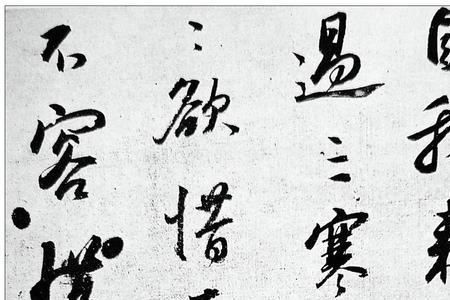 自我來
過三寒
〻欲惜
不容惜